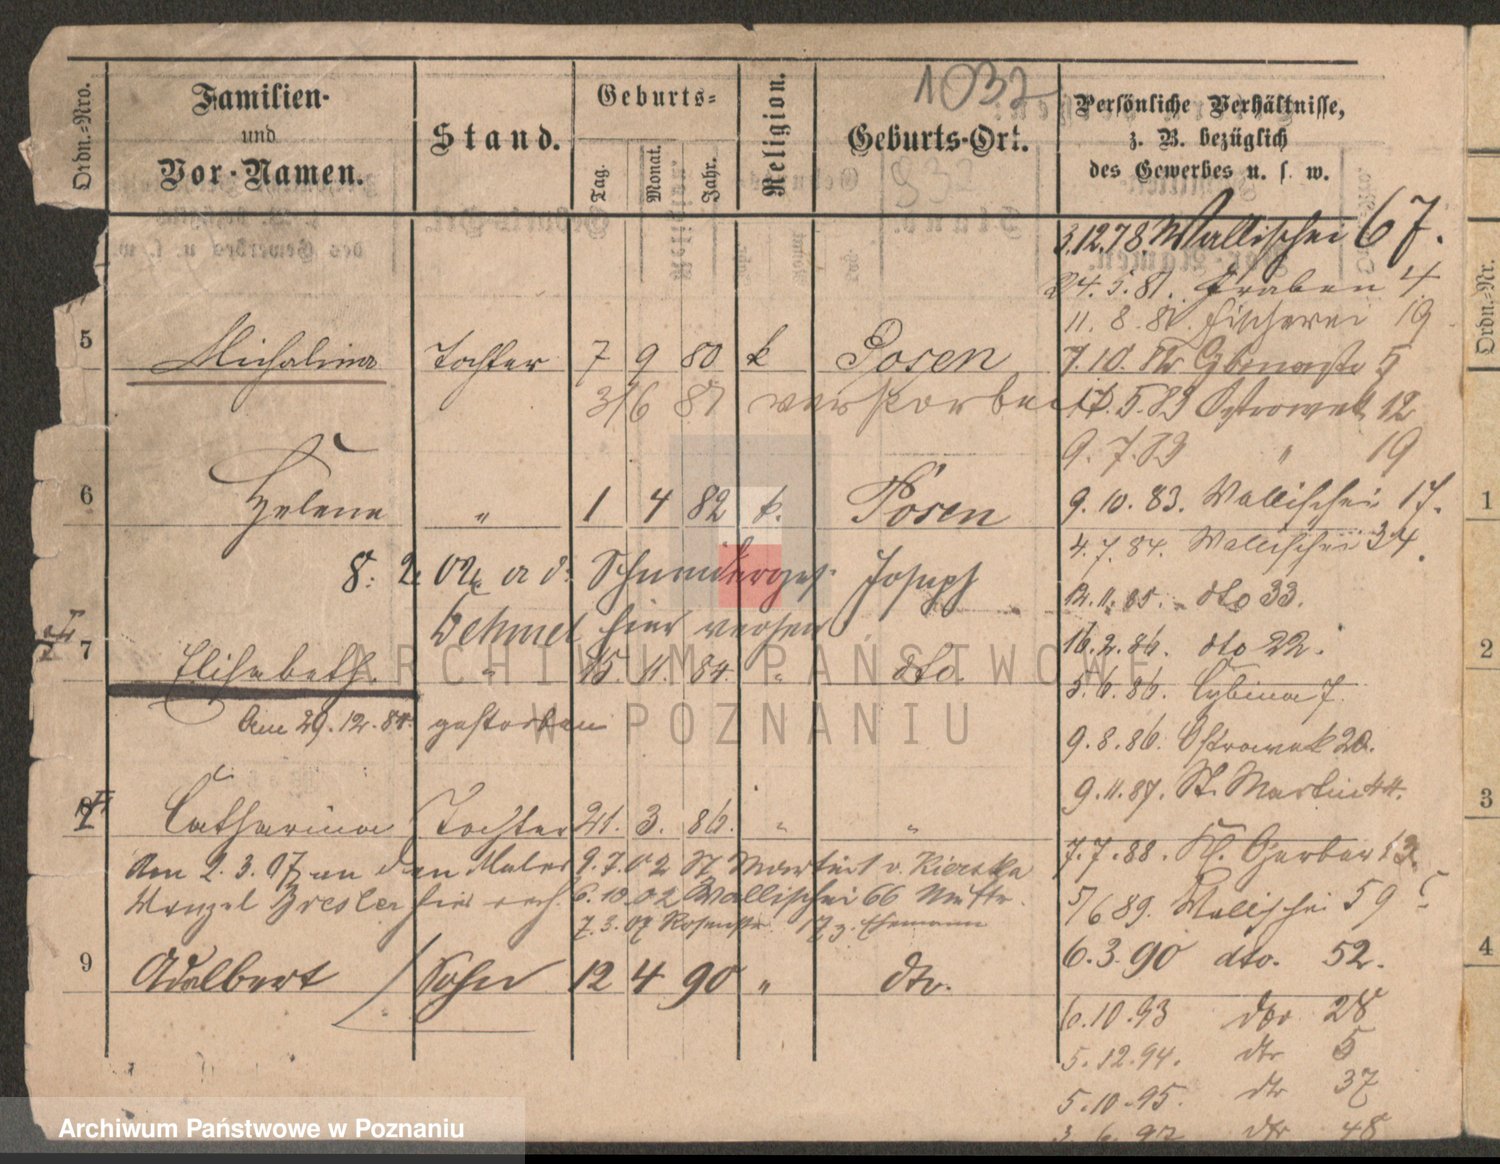 Ordn.-Nro.
Familien-
und
Vor-Namen.
Stand.
Geburts-
Tag.
Monat.
Jahr.
Religion.
1032
Geburts-Ort.
Persönliche Verhältnisse,
z. B. bezüglich
des Gewerbes u. s. w.
3.12.78. Wallischei 67.
24. 5. 81. Graben 4
11. 8. 81. Fischerei 19
5 Michalina Tochter 7 9 80 k Posen
7. 10. 5
3/6 81 verstorben
17. 5. 83 Ostrowek 12
9. 7. 83 " 19
6 Helena " 1 4 82 k. Posen
9. 10. 83. Wallischei 17.
4. 7. 84. Wallischei 34.
8. 2. 02 a. d. Schneiderges. Joseph
12. 11. 85. dto 33.
Behmel hier
16. 2. 86. dto 22.
7 Elisabeth " 15. 11. 84. " dto.
5. 6. 86. Cybina 7.
Am 29. 12. 84. gestorben
9. 8. 86. Ostrowek 20.
9. 11. 87. St. Martin 44.
8 Catharina Tochter 21. 3. 86. " "
7. 7. 88. Kl. Gerber 13.
Am 2. 3. 07 an den Maler 9. 7. 02 St Martin 1 v. Kierska
Wenzel Bresler hier verh. 6. 10. 02 Wallischei 66 Mutter
5/6 89. Wallischei 59
7. 3. 07 Rosenstr. 17 z. Ehemann
9 Adalbert Sohn 12 4 90 " dto.
6. 3. 90 dto. 52.
6. 10. 93 dto 28
5. 12. 94. dto 5
5. 10. 95. dto 37
3. 6. 97 dto 48
Ordn.-Nr.
1
2
3
4
ARCHIWUM PAŃSTWOWE
W POZNANIU
Archiwum Państwowe w Poznaniu